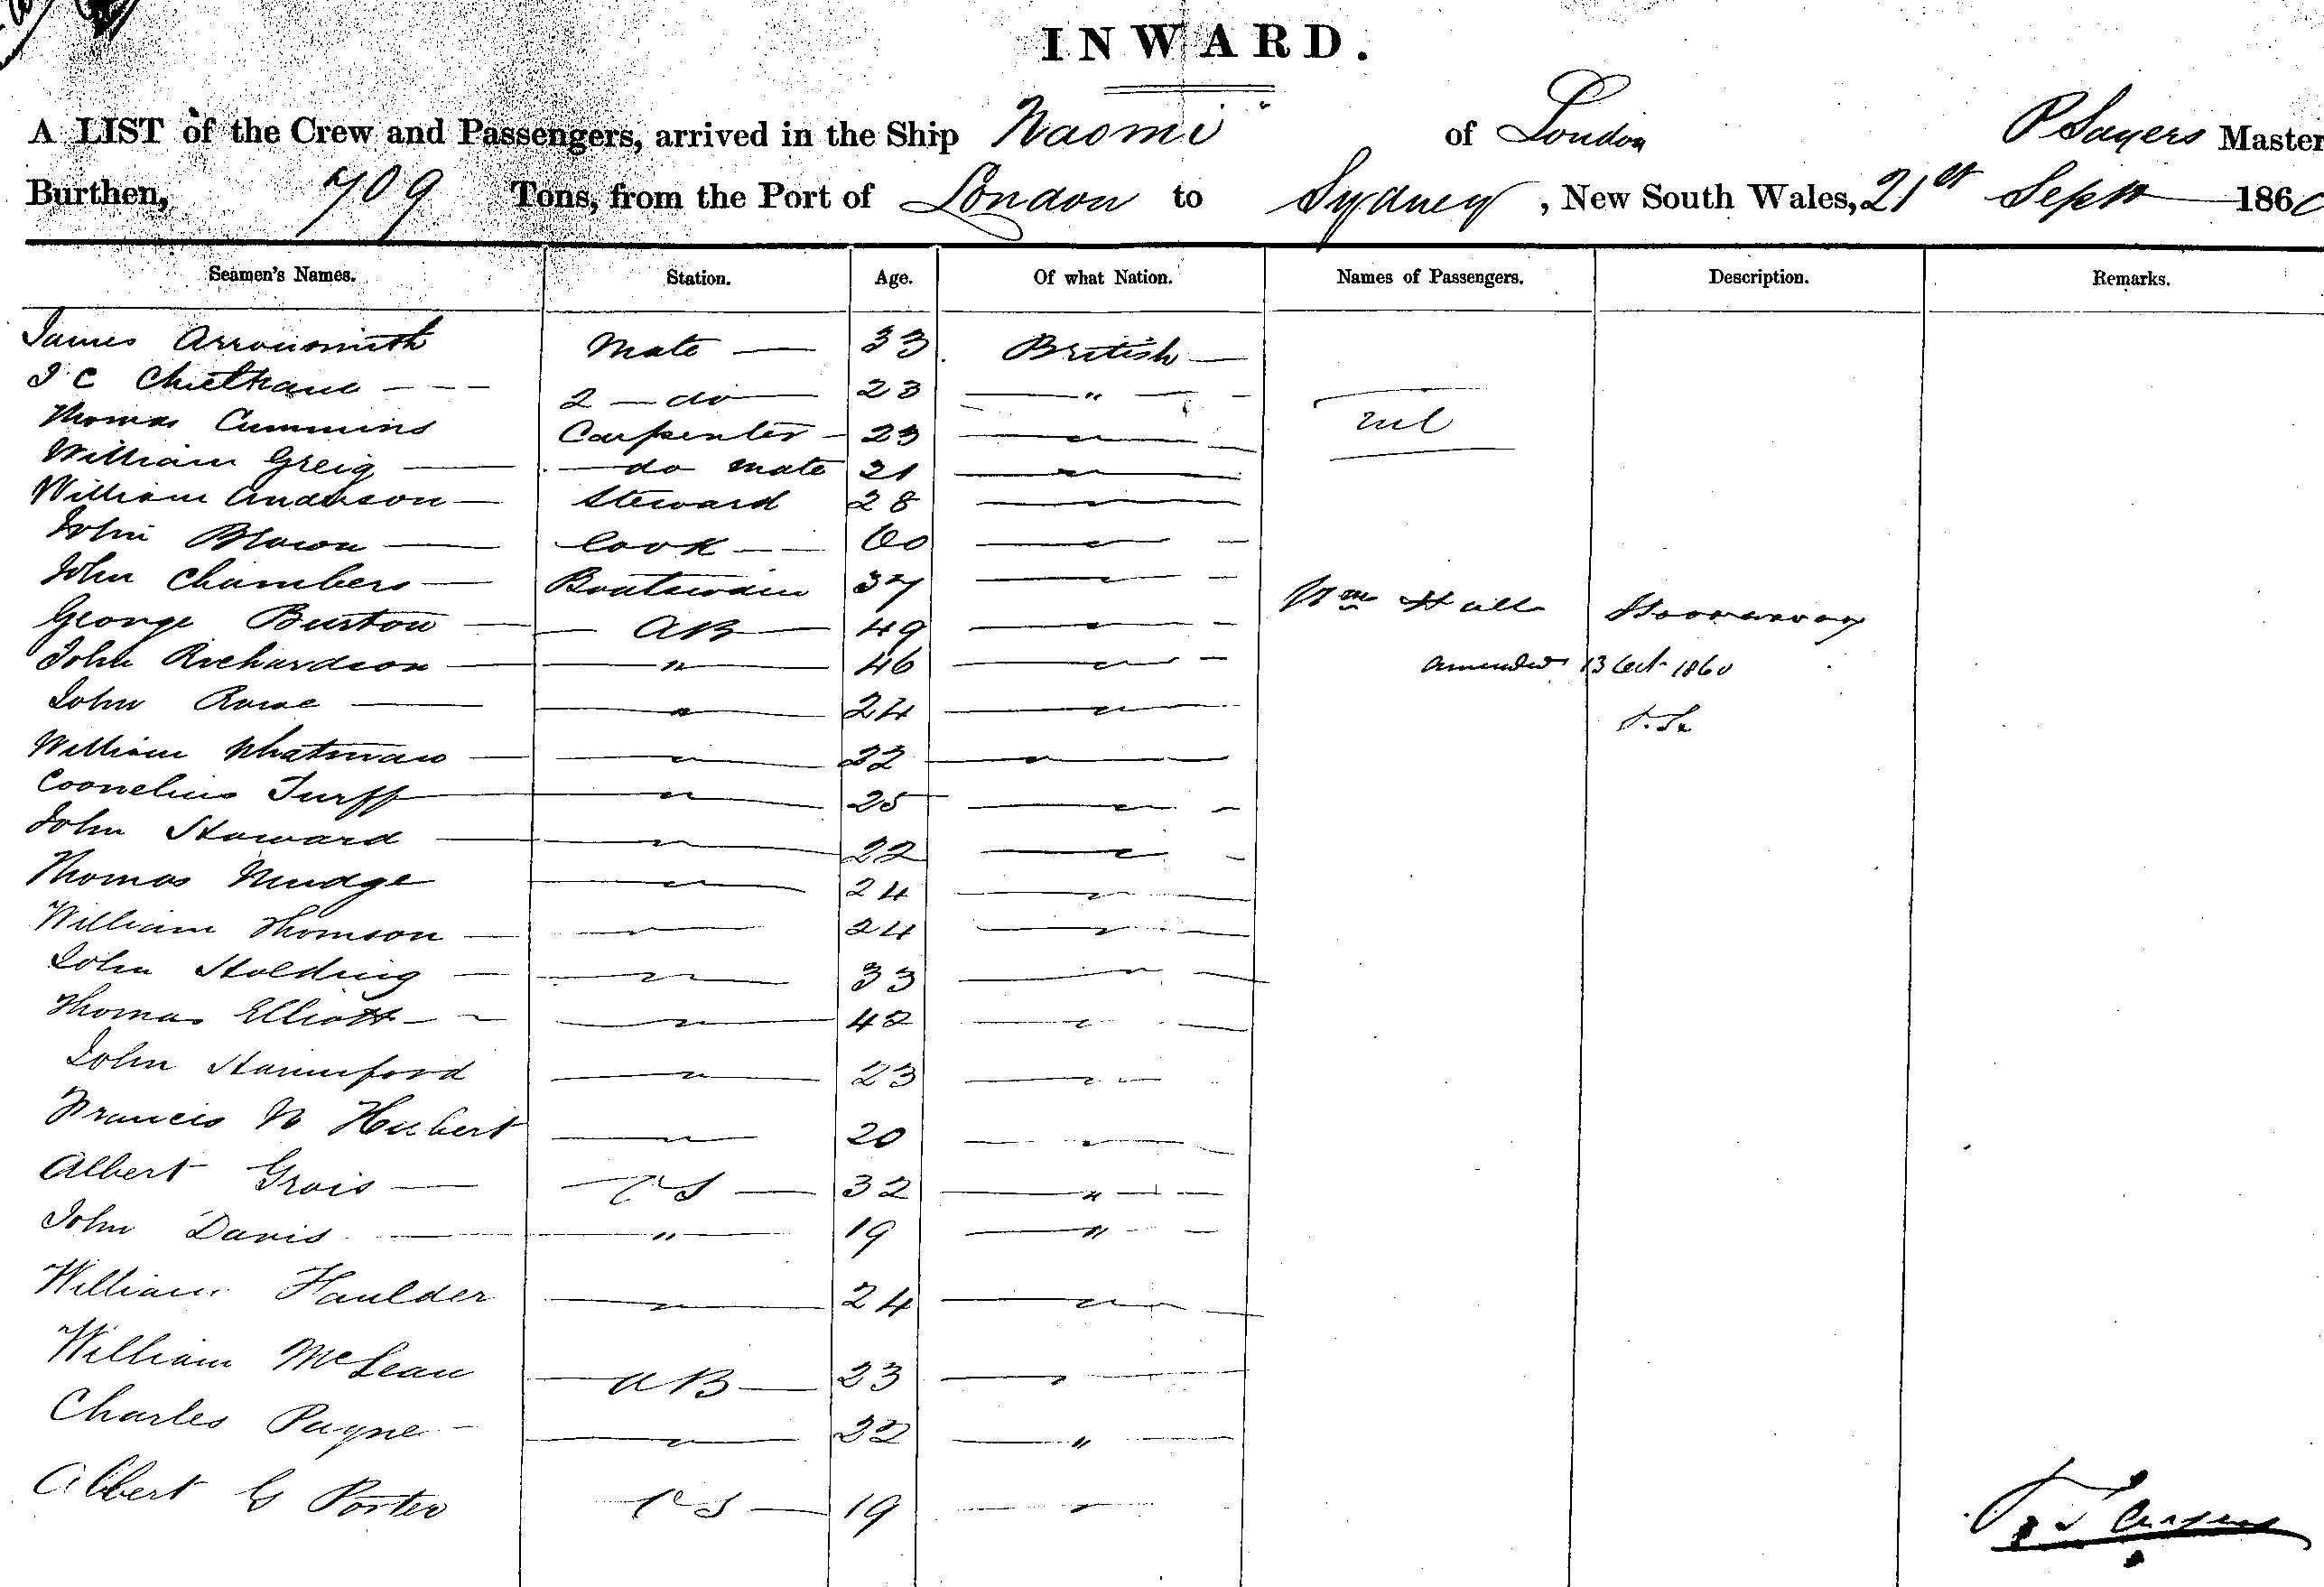 INWARD.
A LIST of the Crew and Passengers, arrived in the Ship "Naomi" of London P Sayers Master
Burthen, 709 Tons, from the Port of London to Sydney, New South Wales, 21st Sept 1860
Seamen's Names. Station. Age. Of what Nation. Names of Passengers. Description. Remarks.
James Arrowsmith Mate — 33 British —
J C 2 — do — 23 — " —
Thomas Cummins Carpenter — 23 — " — nil
William Greig — — do mate 21 — " —
William Anderson — Steward 28 — " —
John Brown — Cook — 60 — " —
John Chambers — Boatswain 37 — " —
George Burton — — AB — 49 — " — Wm Hall Stowaway
John Richardson — — " — 46 — " — amended 13 Oct 1860
John Rowe — — " — 24 — " —
William Whatman — — " — 22 — " —
Coonelius Turff — " — 25 — " —
John Howard — " — 22 — " —
Thomas Mudge — " — 24 — " —
William Thomson — — " — 24 — " —
John Holding — — " — 33 — " —
Thomas Elliott — — " — 42 — " —
John Hannaford — " — 23 — " —
Francis W Hubert — " — 20 — " —
Albert Grois — — OS — 32 — " —
John Davis — — " — 19 — " —
William Haulder — " — 24 — " —
William McLean — AB — 23 — " —
Charles Payne — — " — 22 — " —
Albert G Porter — OS — 19 — " —